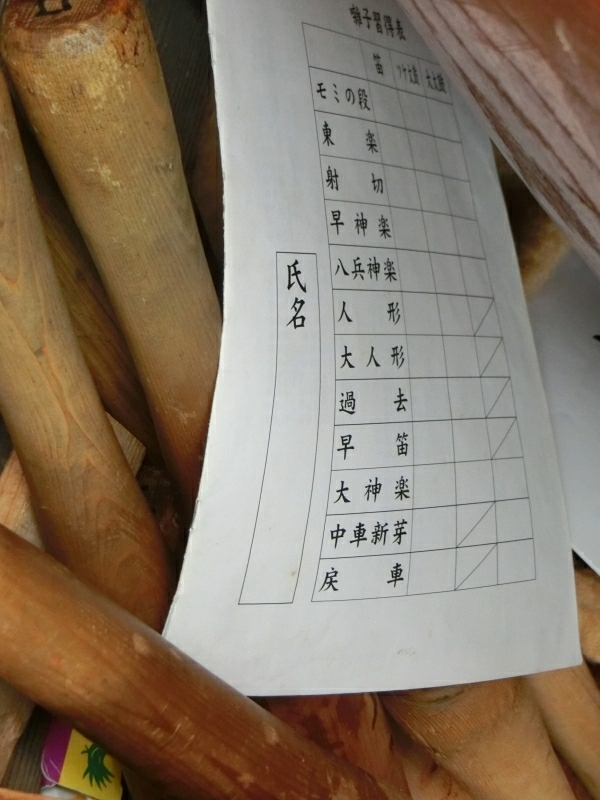 囃子習得表
笛 ツケ太鼓 大太鼓
モミの段
東楽
射切
早神楽
八兵神楽
人形
大人形
過去
早笛
大神楽
中車新芽
戻車
氏名